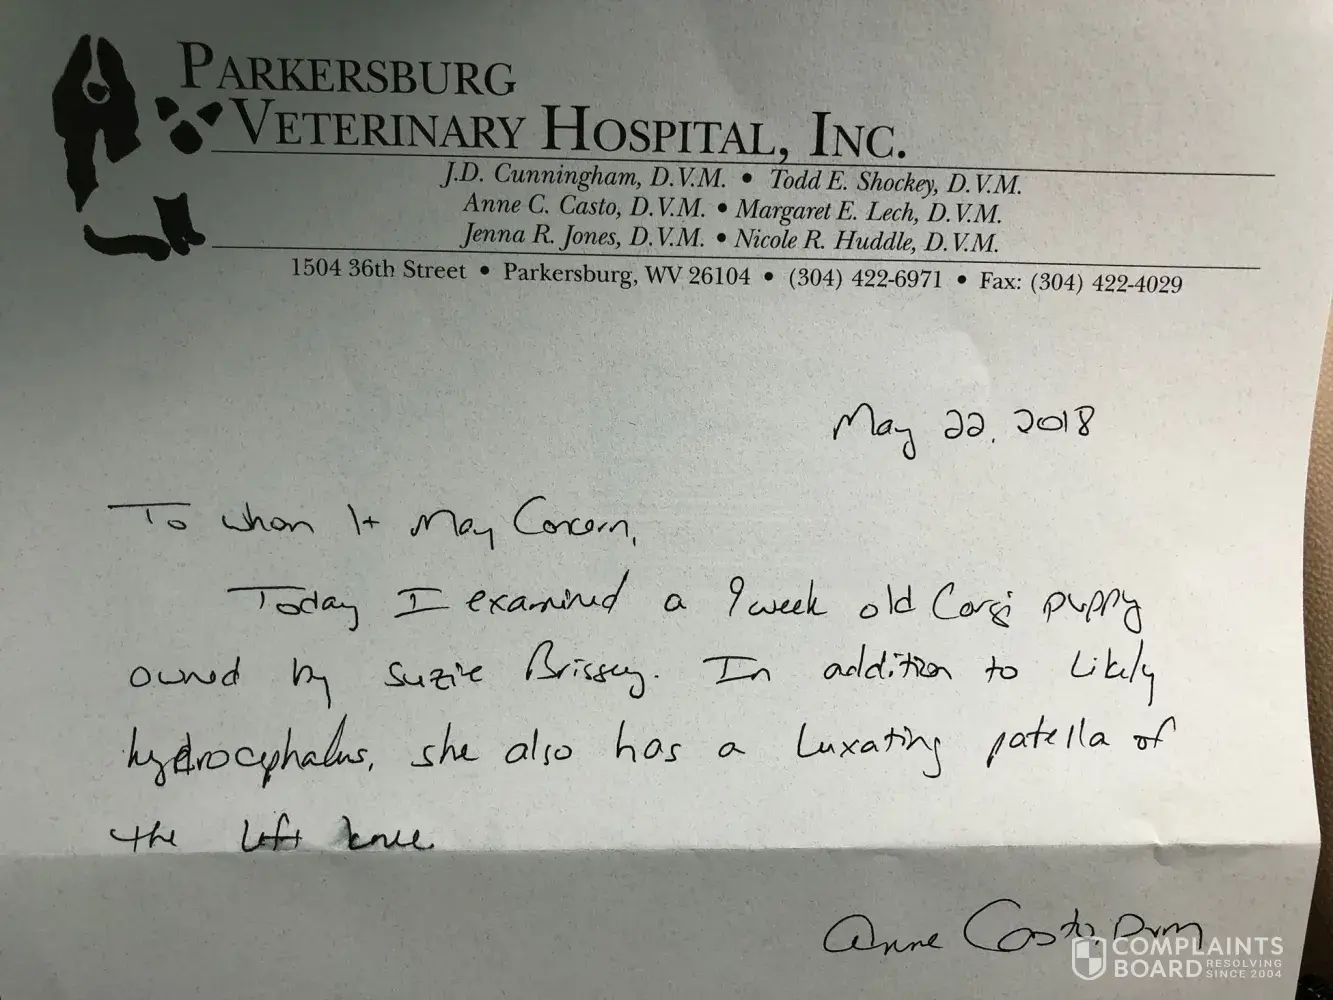 PARKERSBURG
VETERINARY HOSPITAL, INC.
J.D. Cunningham, D.V.M. • Todd E. Shockey, D.V.M.
Anne C. Casto, D.V.M. • Margaret E. Lech, D.V.M.
Jenna R. Jones, D.V.M. • Nicole R. Huddle, D.V.M.
1504 36th Street • Parkersburg, WV 26104 • (304) 422-6971 • Fax: (304) 422-4029
May 22, 2018
To whom It May Concern,
Today I examined a 9 week old Corgi puppy
owned by Suzie Brissey. In addition to likely
hydrocephalus, she also has a luxating patella of
the left knee.
Anne Casto, DVM
COMPLAINTS
BOARD RESOLVING
SINCE 2004